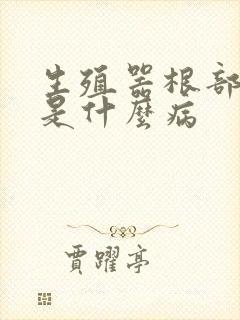 生殖器根部
是什麼病
賈躍亭